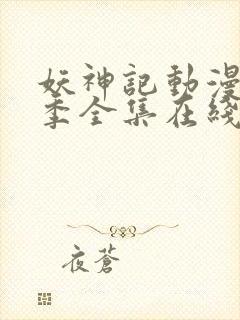 妖神記動漫
季全集在綫
夜蒼